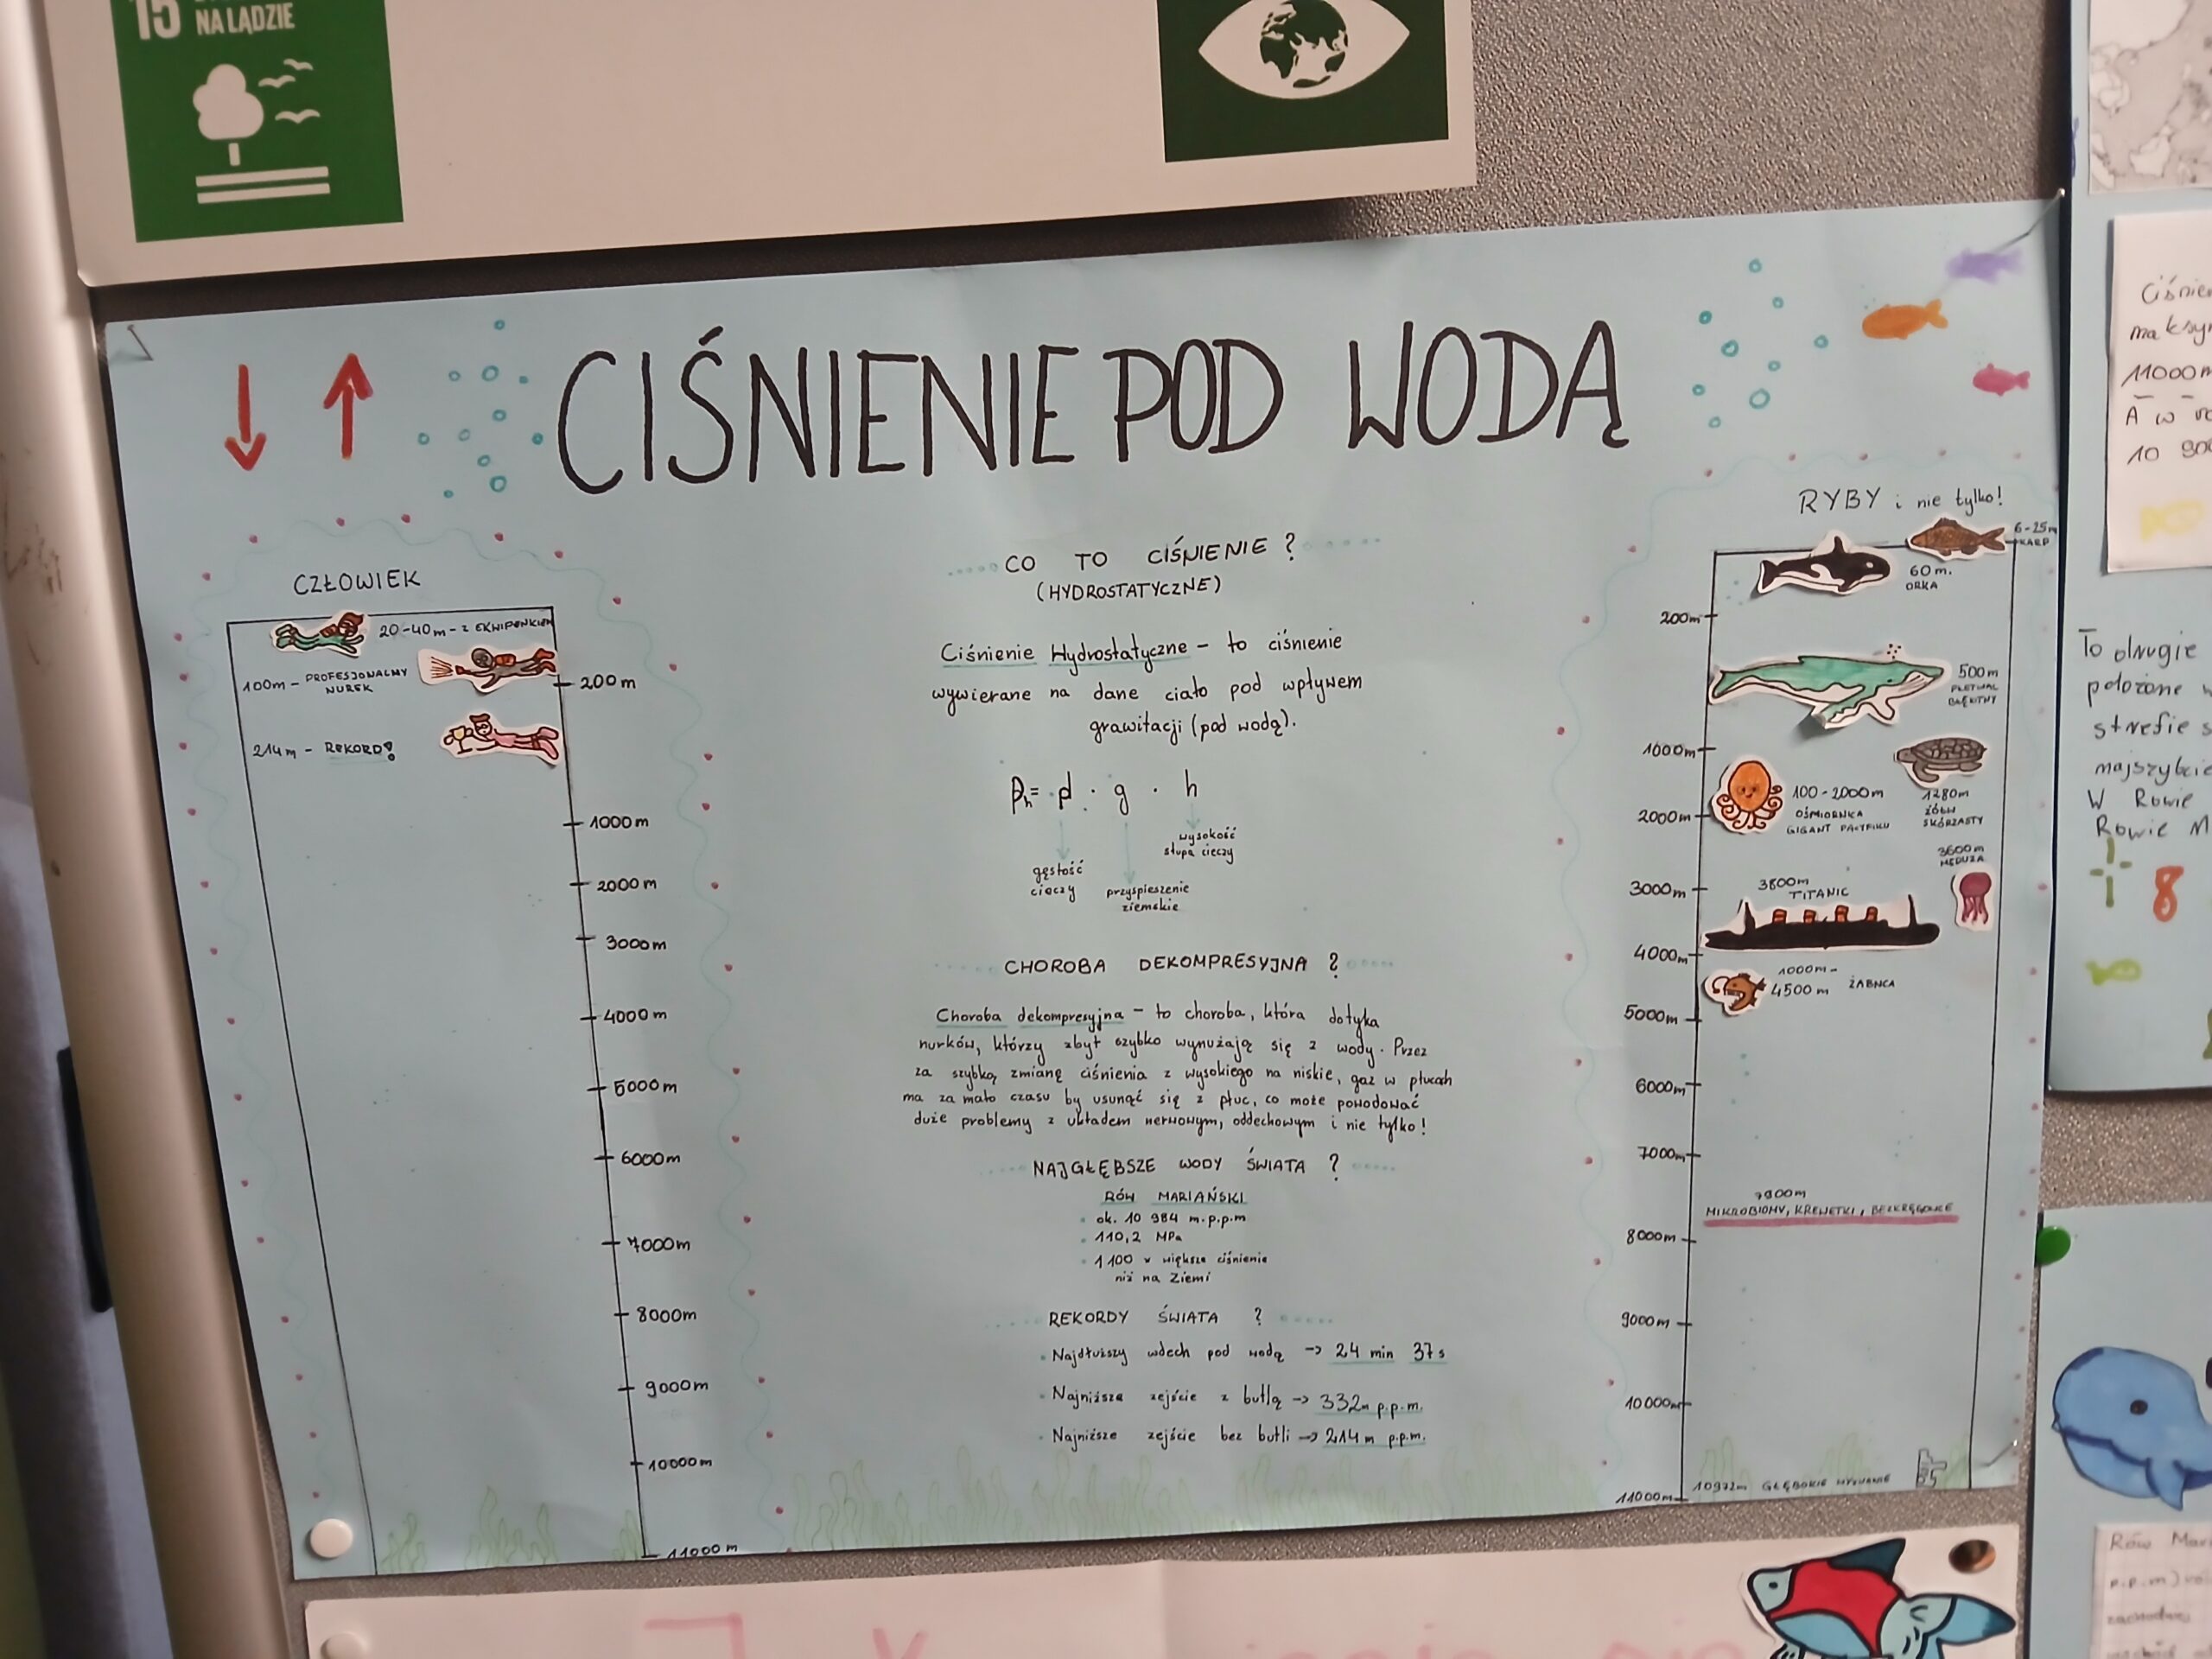 15
NA LĄDZIE
CIŚNIENIE POD WODĄ
CZŁOWIEK
20-40m - z EKWIPUNKIEM
100m - PROFESJONALNY
NUREK
214m - REKORD!
200m
1000m
2000m
3000m
4000m
5000m
6000m
7000m
8000m
9000m
10000m
11000m
CO TO CIŚNIENIE?
(HYDROSTATYCZNE)
Ciśnienie Hydrostatyczne - to ciśnienie
wywierane na dane ciało pod wpływem
grawitacji (pod wodą).
ph = d · g · h
wysokość
słupa cieczy
gęstość
cieczy
przyspieszenie
ziemskie
CHOROBA DEKOMPRESYJNA?
Choroba dekompresyjna - to choroba, która dotyka
nurków, którzy zbyt szybko wynużają się z wody. Przez
za szybką zmianę ciśnienia z wysokiego na niskie, gaz w płucach
ma za mało czasu by usunąć się z płuc, co może powodować
duże problemy z układem nerwowym, oddechowym i nie tylko!
NAJGŁĘBSZE WODY ŚWIATA?
RÓW MARIAŃSKI
ok. 10 984 m.p.p.m
110,2 MPa
1100 x większe ciśnienie
niż na Ziemi
REKORDY ŚWIATA?
Najdłuższy wdech pod wodą -> 24 min 37s
Najniższe zejście z butlą -> 332m p.p.m.
Najniższe zejście bez butli -> 214m p.p.m.
RYBY i nie tylko!
6-25m
KARP
60m.
ORKA
200m
500m
PŁETWAL
BŁĘKITNY
1000m
100-2000m
OŚMIORNICA
GIGANT PACYFIKU
1280m
ŻÓŁW
SKÓRZASTY
2000m
3600m
MEDUZA
3000m
3800m
TITANIC
4000m
1000m-
4500m ŻABNICA
5000m
6000m
7000m
7900m
MIKROBIOMY, KREWETKI, BEZKRĘGOWCE
8000m
9000m
10000m
10972m GŁĘBOKIE
11000m
maksy
11000m
A w
10
To drugie
położone w
strefie s
najszybcie
W Rowie
Rowie M
8
Rów Mari
p.p.m)